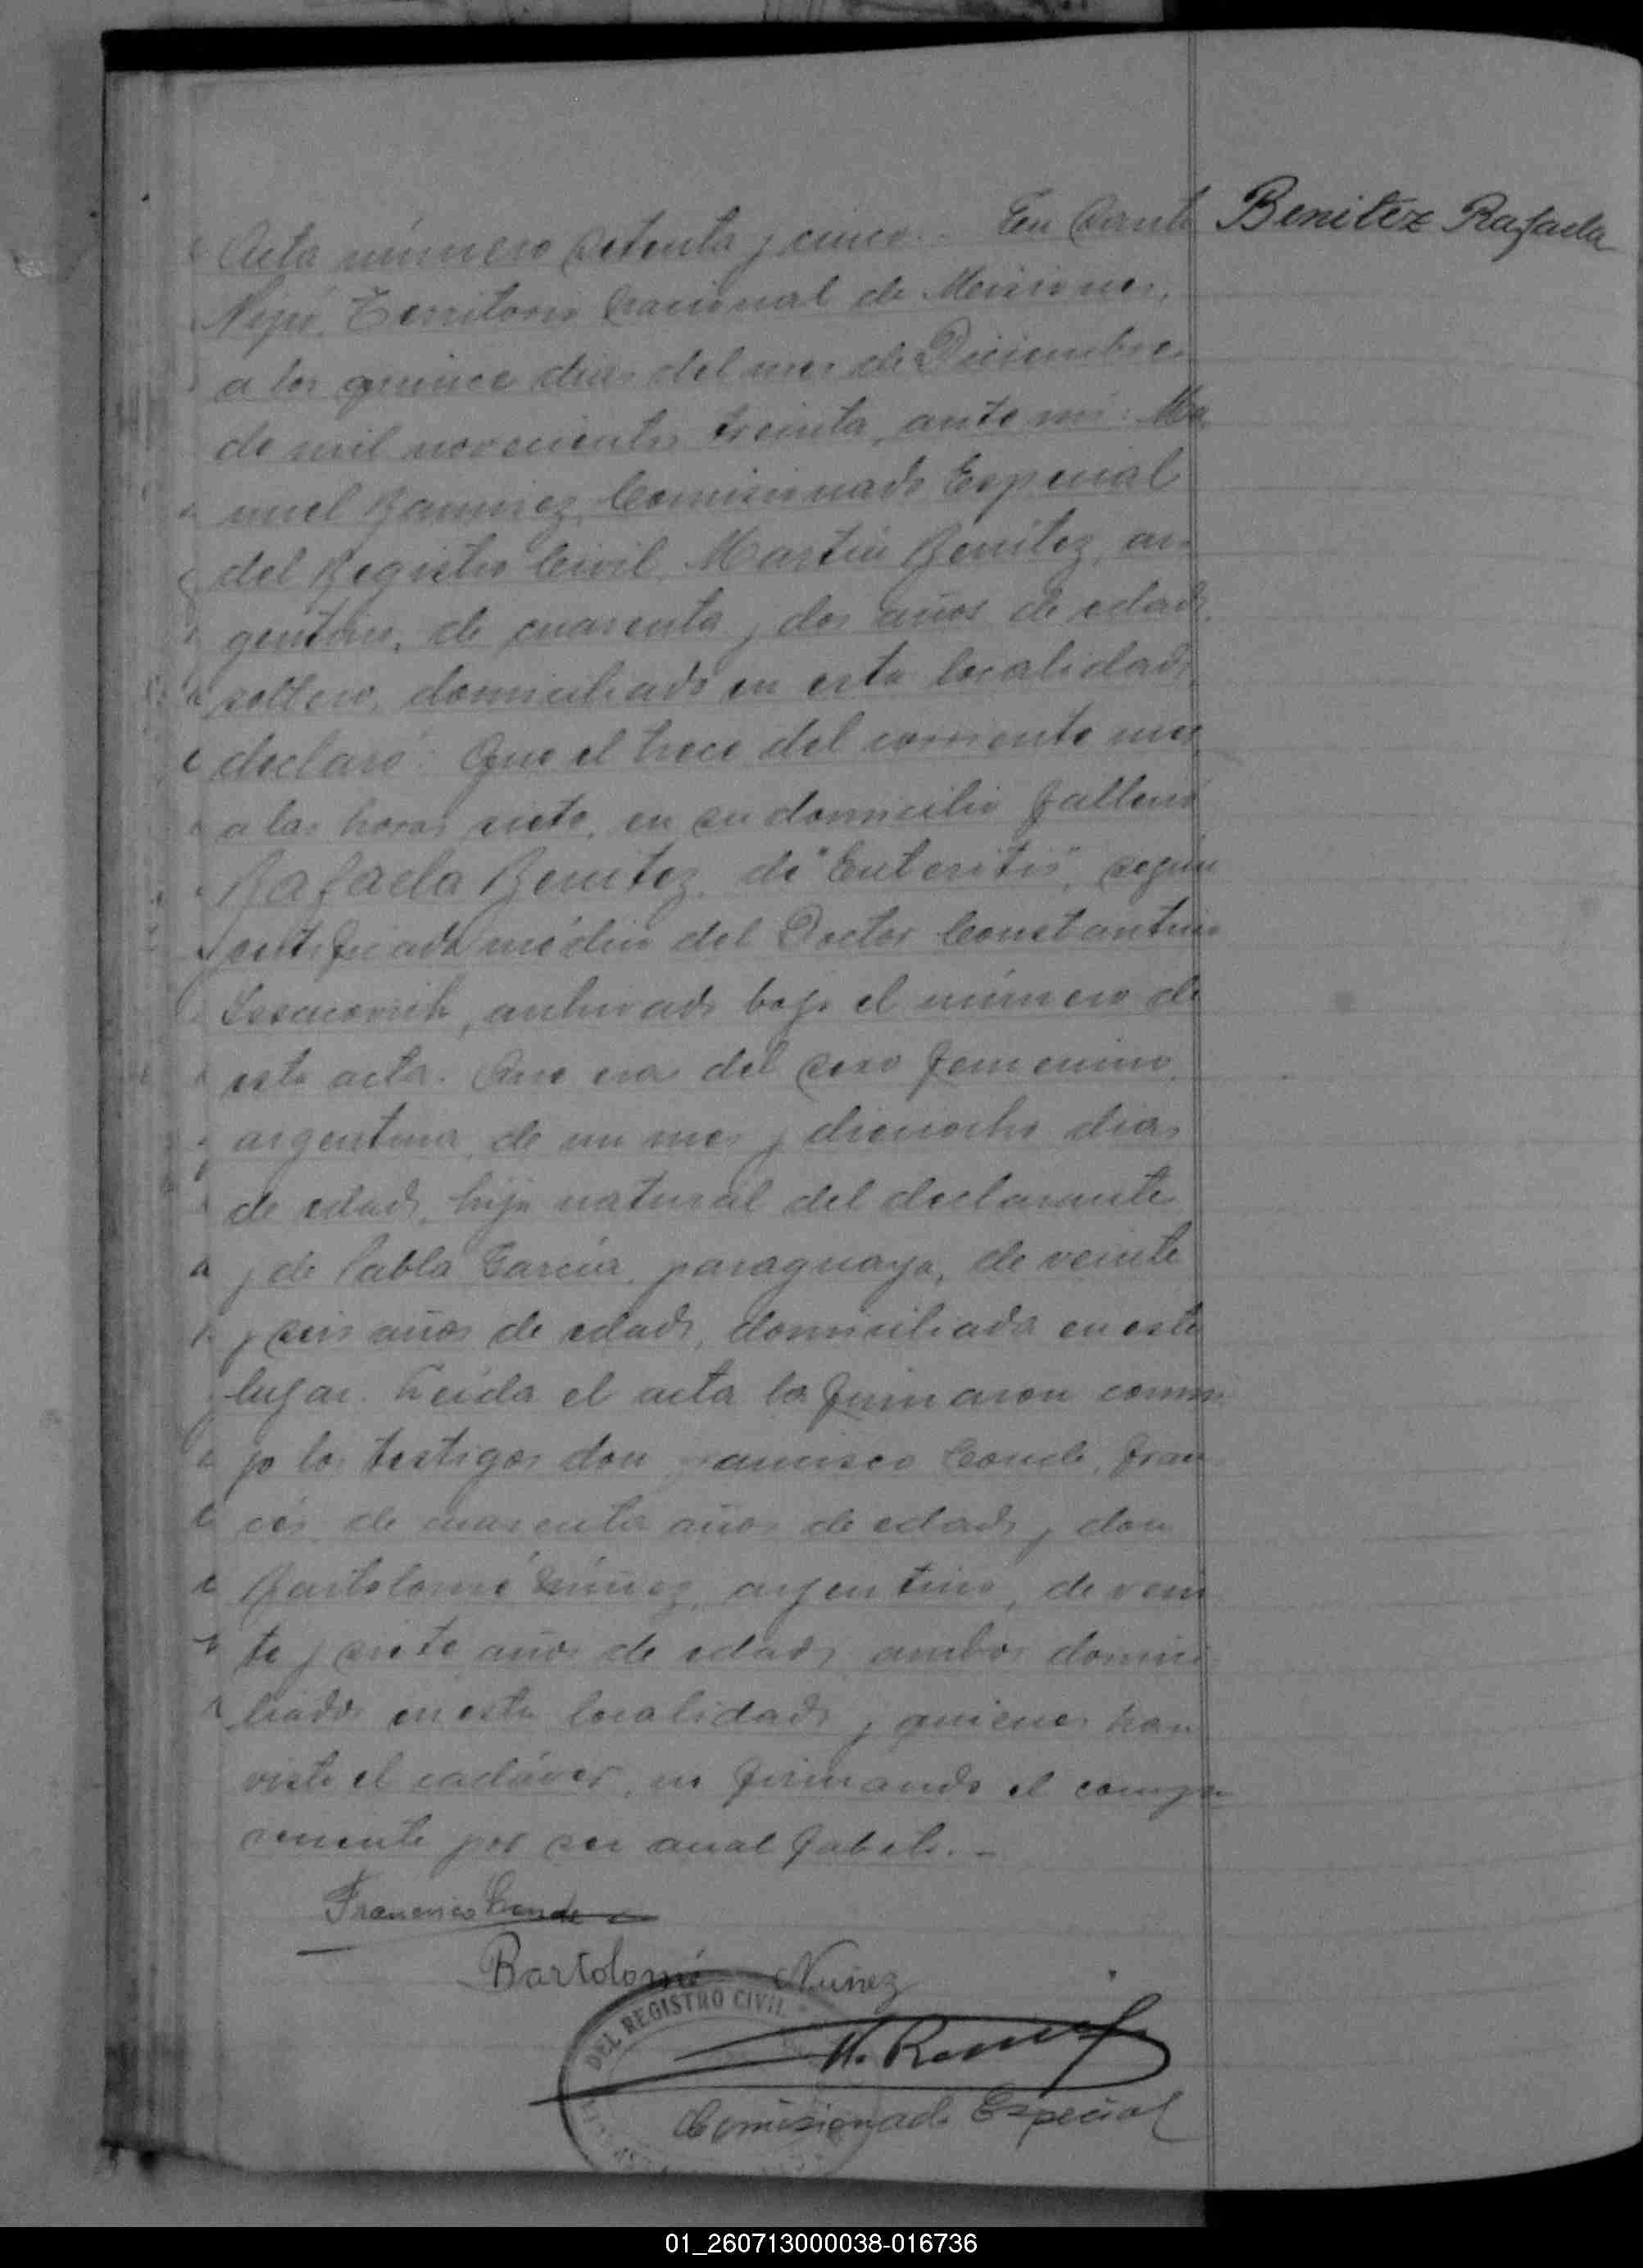 Benitez Rafaela
Acta número setenta y cinco.. En Santo
Pipó, Territorio Nacional de Misiones,
a los quince dias del mes de Diciembre
de mil novecientos treinta, ante mi: Ma
nuel Ramirez, Comisionado Especial
del Registro Civil, Martin Benitez, ar
gentino, de cuarenta y dos años de edad,
soltero, domiciliado en esta localidad,
declaró: Que el trece del corriente mes
a las horas siete, en su domicilio falleció
Rafaela Benitez, de "Enteritis", segun
certificado médico del Doctor Constantino
archivado bajo el número de
esta acta. Que era del sexo femenino,
argentina, de un mes y dieciocho dias
de edad, hija natural del declarante
y de Pabla Garcia, paraguaya, de veinte
y seis años de edad, domiciliada en este
lugar. Leida el acta la firmaron conmi
go los testigos don Francisco Conde, fran
cés, de cuarenta años de edad y don
Bartolomé Núñez, argentino, de vein
te y siete años de edad, ambos domici
liados en esta localidad y quienes han
visto el cadáver, no firmando el compa
reciente por ser analfabeto. -
Francisco Conde
Bartolomé Nuñez
DEL REGISTRO CIVIL
M. Ramirez
Comisionado Especial
01_260713000038-016736